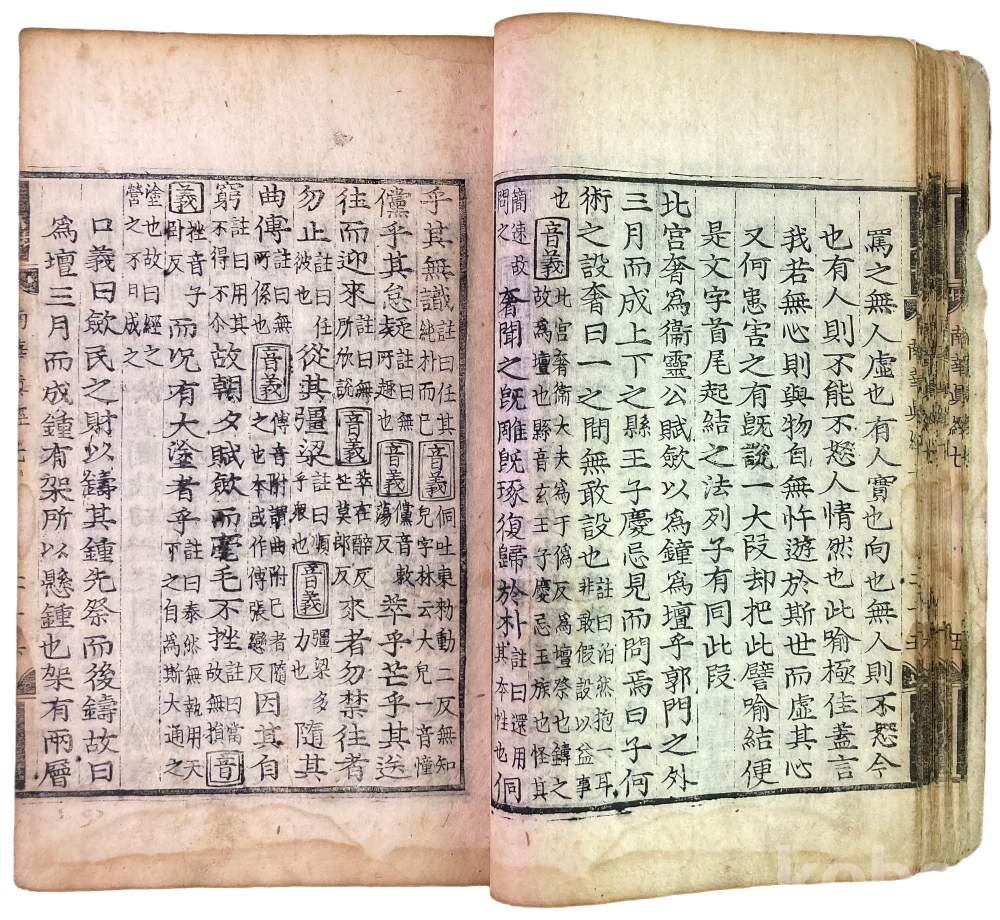 罵之無人虛也有人實也向也無人則不怒今
也有人則不能不怒人情然也此喻極佳盖言
我若無心則與物自無忤遊於斯世而虛其心
又何患害之有旣說一大段却把此譬喻結便
是文字首尾起結之法列子有同此段
北宮奢爲衛靈公賦歛以爲鐘爲壇乎郭門之外
三月而成上下之縣王子慶忌見而問焉曰子何
術之設奢曰一之間無敢設也註曰泊然抱一耳非敢假設以益事
也音義北宮奢衛大夫爲于僞反爲壇祭也鑄之故爲壇也縣音玄王子慶忌王族也怪其
簡速故問之奢聞之旣雕旣琢復歸於朴註曰還用其本性也侗
乎其無識註曰任其純朴而已音義侗吐東勑動二反無知皃字林云大皃一音慟
儻乎其怠疑註曰無所趣也音義儻音敕蕩反萃乎芒乎其送
往而迎來註曰無所欣說音義萃在醉反芒莫郎反來者勿禁往者
勿止註曰任彼也從其彊梁註曰順乎衆也音義彊梁多力也隨其
曲傅註曰無所係也音義傅音附謂曲附己者隨之也本或作傳張戀反因其自
窮註曰用其不得不尒故朝夕賦歛而毫毛不挫註曰當故無損音
義挫音子卧反而况有大塗者乎註曰泰然無執用天下之自爲斯大通之
塗也故曰經之營之不日成之
口義曰歛民之財以鑄其鍾先祭而後鑄故曰
爲壇三月而成鍾有架所以懸鍾也架有兩層
南華眞經七